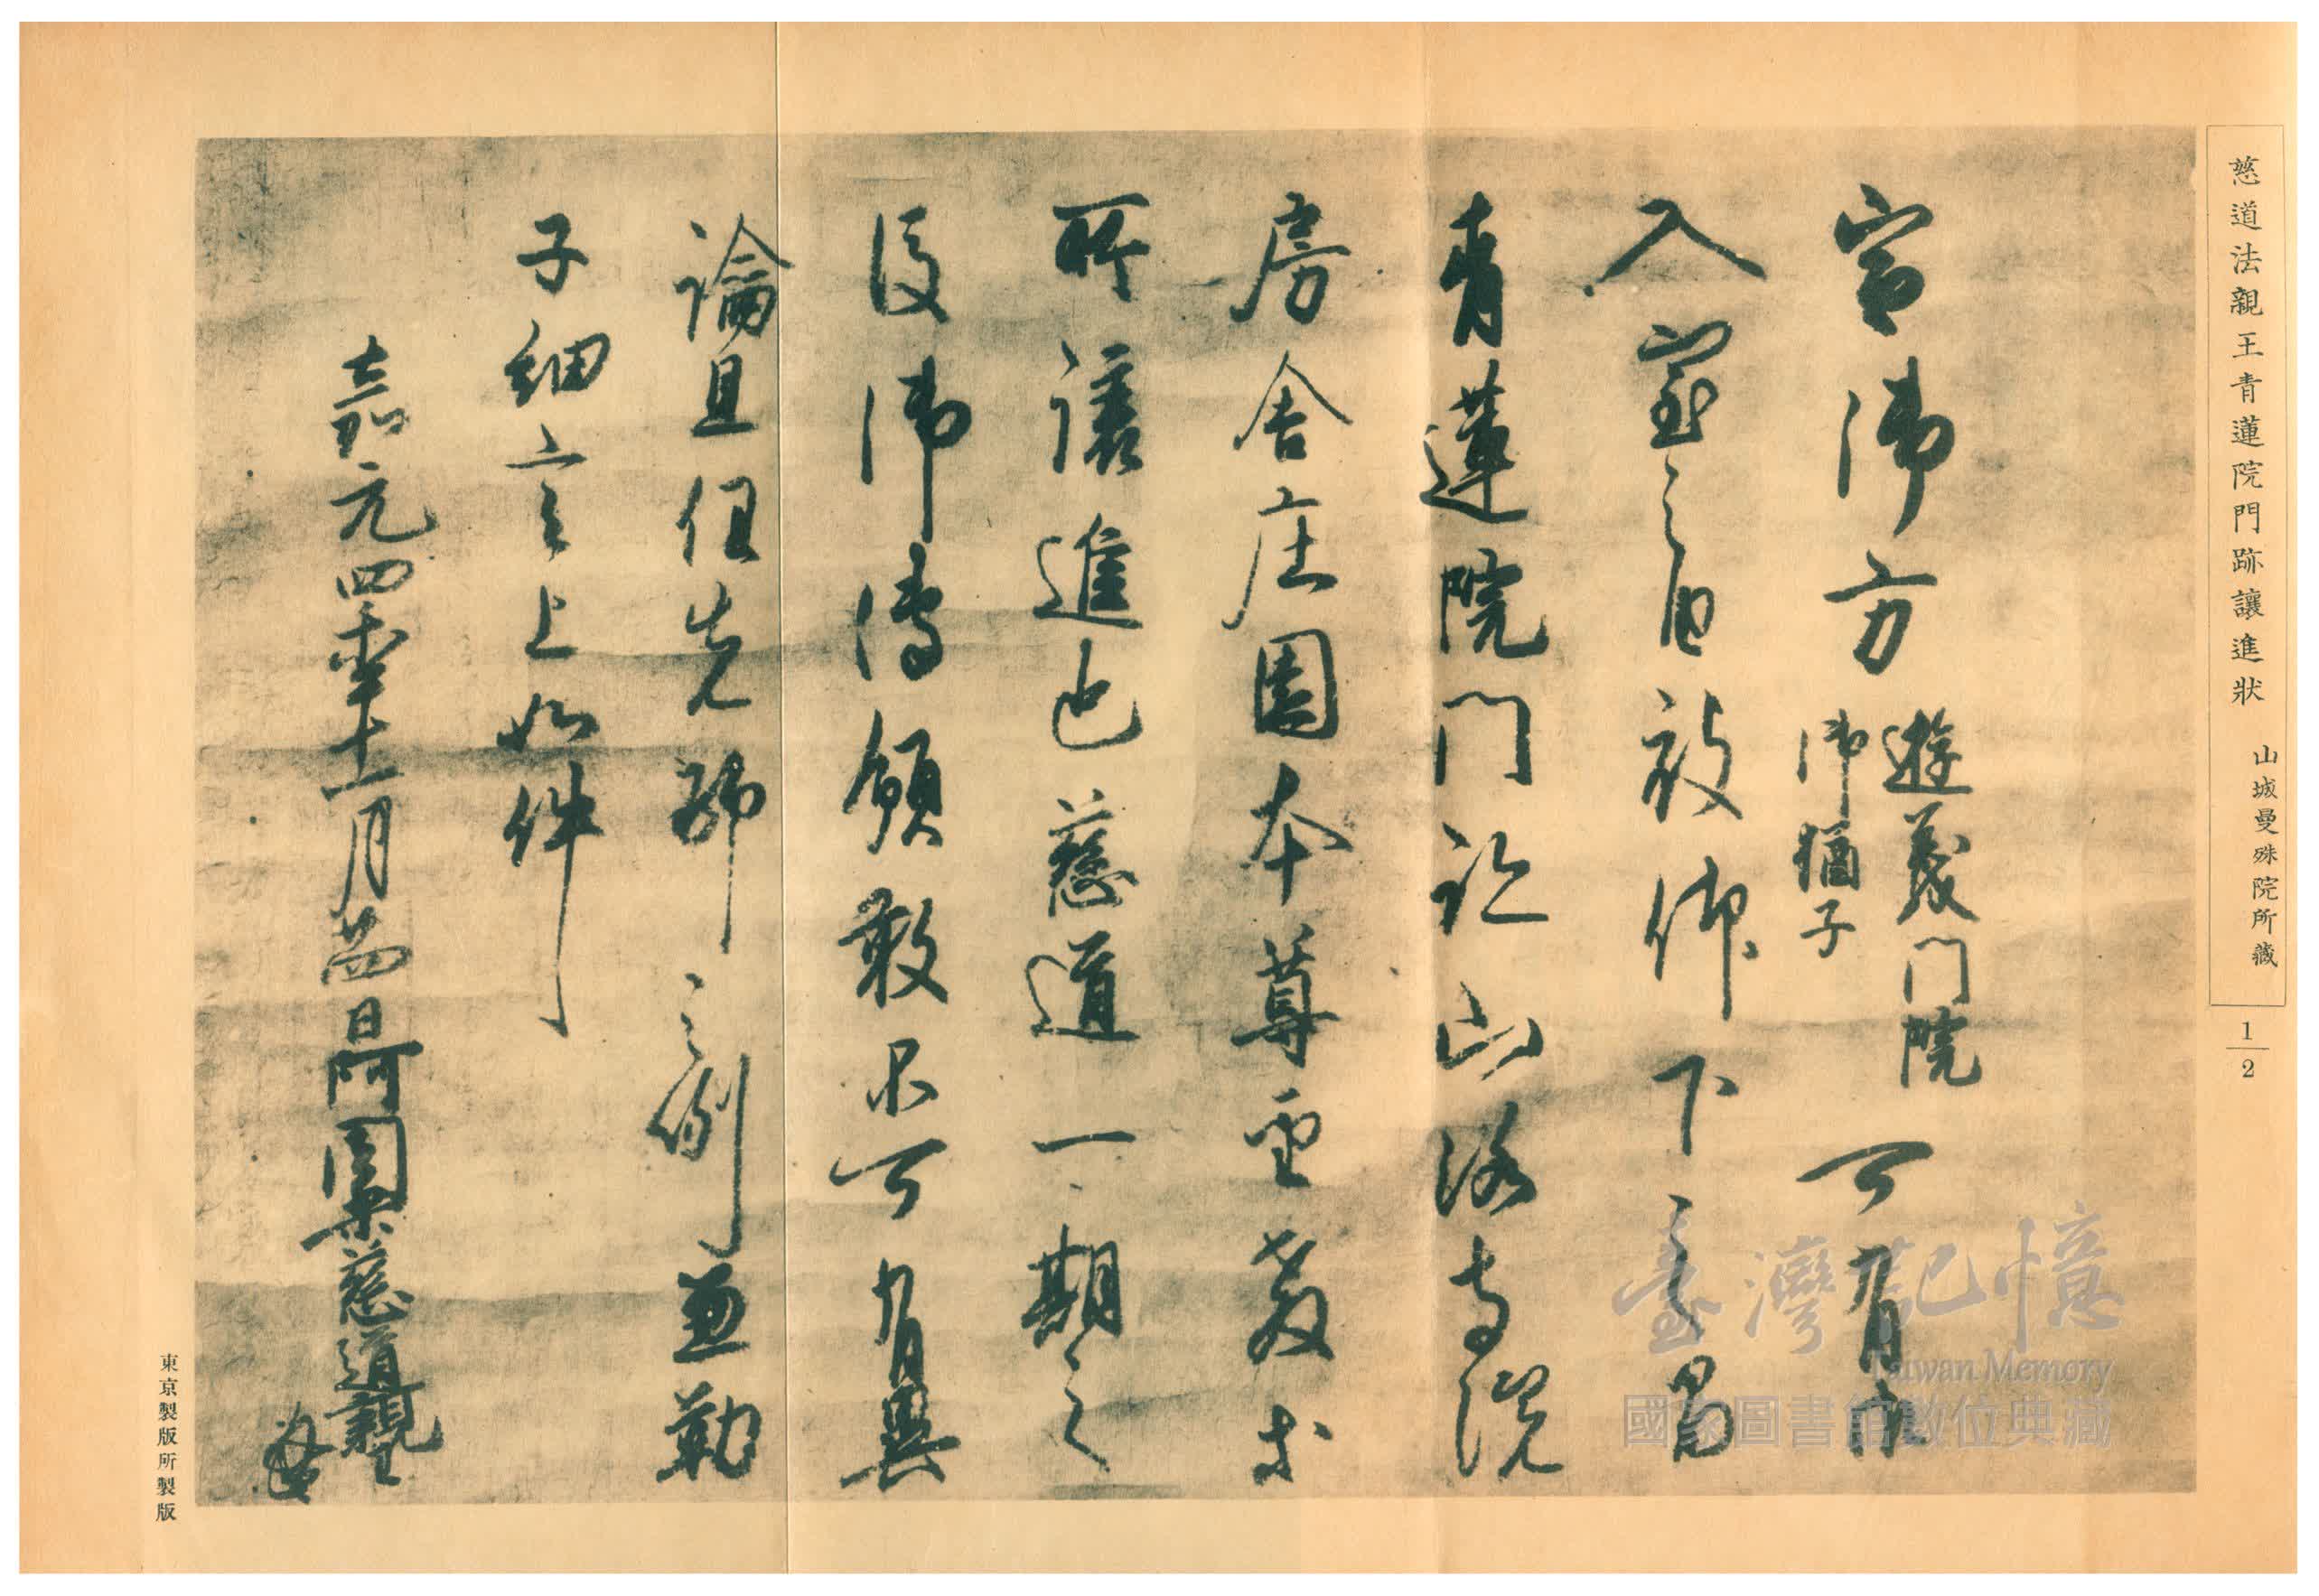 慈道法親王青蓮院門跡讓進狀 山城曼殊院所藏
1/2
宮御方 遊義門院
御猶子 可有御
入室之由被仰下之間
青蓮院門跡山洛寺院
房舎庄園本尊聖教等
所譲進也慈道一期之
後御傳領敢不可有異
論且任先師之例兼勒
子細言上如件
嘉元四年十一月廿四日阿闍梨慈道親王
東京製版所製版
臺灣記憶
Taiwan Memory
國家圖書館數位典藏